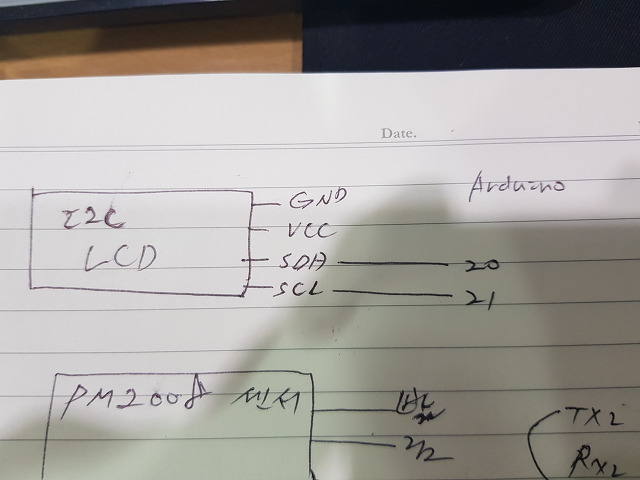 Date.
Arduino
I2C
LCD
GND
VCC
SDA 20
SCL 21
PM2008 센서
TX2
RX2